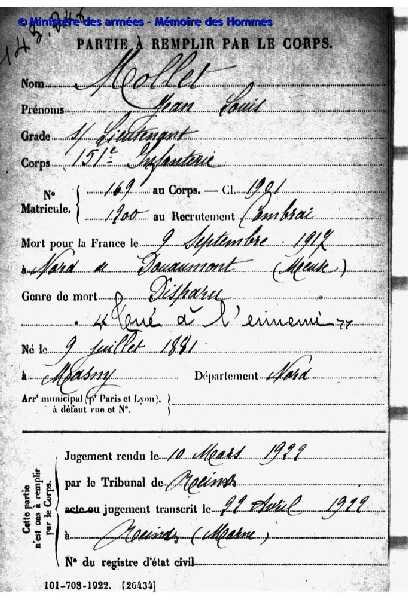 © Ministère des armées - Mémoire des Hommes
145.045
PARTIE À REMPLIR PAR LE CORPS.
Nom Mollet
Prénoms Jean Louis
Grade S/ Lieutenant
Corps 151e Infanterie
Nº Matricule. 169 au Corps. — Cl. 1901
1300 au Recrutement Cambrai
Mort pour la France le 9 Septembre 1917
à Nord de Douaumont (Meuse)
Genre de mort Disparu
"Tué à l'ennemi"
Né le 9 juillet 1881
à Masny Département Nord
Arrt municipal (pr Paris et Lyon),
à défaut rue et Nº.
Cette partie n'est pas à remplir par le Corps.
Jugement rendu le 10 Mars 1922
par le Tribunal de Reims
acte ou jugement transcrit le 22 Avril 1922
à Reims (Marne)
Nº du registre d'état civil
101-708-1922. [26434]